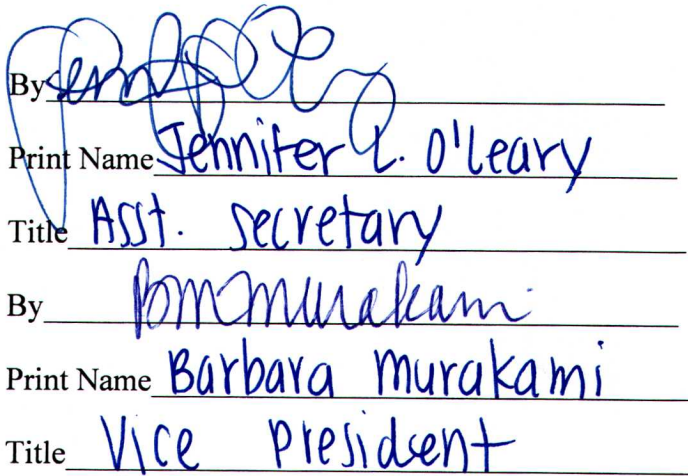 By
Print Name Jennifer L. O'Leary
Title Asst. Secretary
By BMMurakami
Print Name Barbara Murakami
Title Vice President